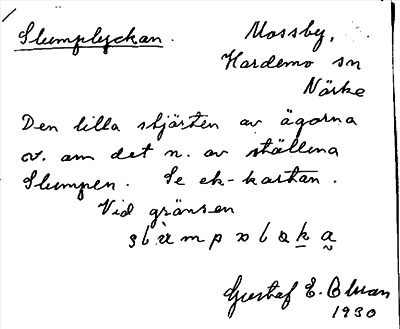 Slumplyckan. Mossby,
Hardemo sn
Närke
Den lilla stjärten av ägorna
ov. om det n. av ställena
Slumpen. Se ek-kartan.
Vid gränsen
Gustaf E. Oluan
1930